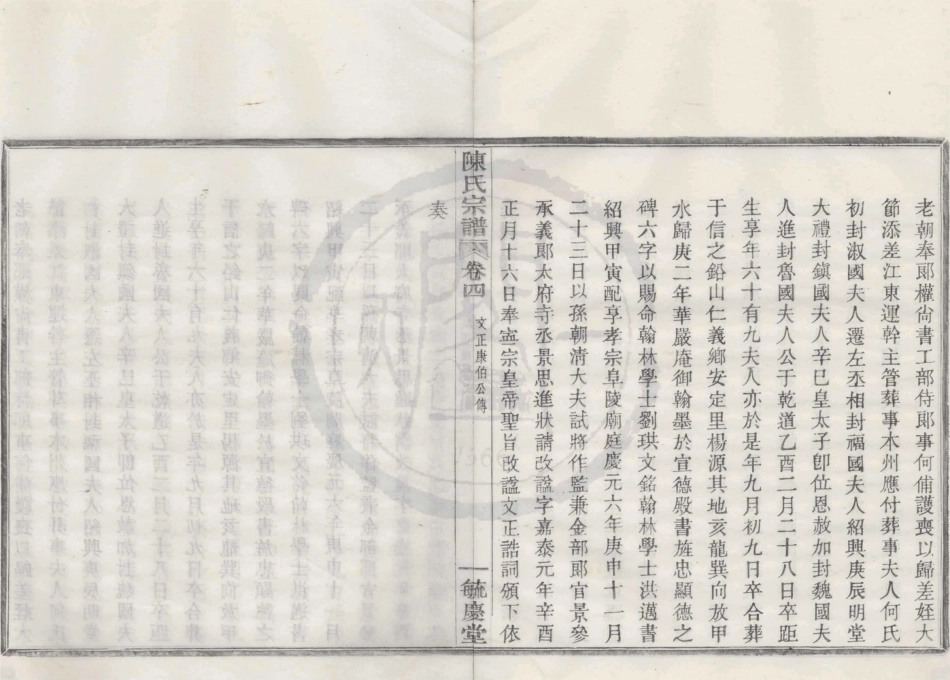 老朝奉郎權尚書工部侍郎事何俌護喪以歸差姪大
節添差江東運幹主管葬事本州應付葬事夫人何氏
初封淑國夫人遷左丞相封福國夫人紹興庚辰明堂
大禮封鎮國夫人辛巳皇太子卽位恩赦加封魏國夫
人進封魯國夫人公于乾道乙酉二月二十八日卒距
生享年六十有九夫人亦於是年九月初九日卒合葬
于信之鉛山仁義鄉安定里楊源其地亥龍巽向放甲
水歸庚二年華嚴庵御翰墨於宣德殿書旌忠顯德之
碑六字以賜命翰林學士劉珙文銘翰林學士洪邁書
紹興甲寅配享孝宗皇陵廟庭慶元六年庚申十一月
二十三日以孫朝清大夫試將作監兼金部郎官景參
承義郎太府寺丞景思進狀請改謚字嘉泰元年辛酉
正月十六日奉寧宗皇帝聖旨改謚文正誥詞頒下依
陳氏宗譜 卷四 文正康伯公傳 毓慶堂
奏